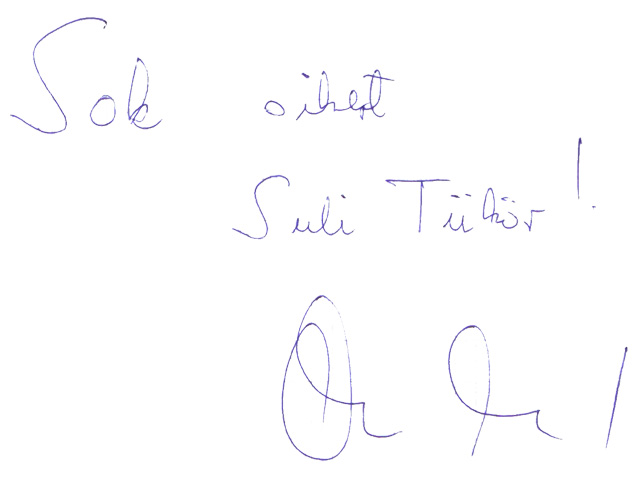 Sok sikert
Suli Tükör!